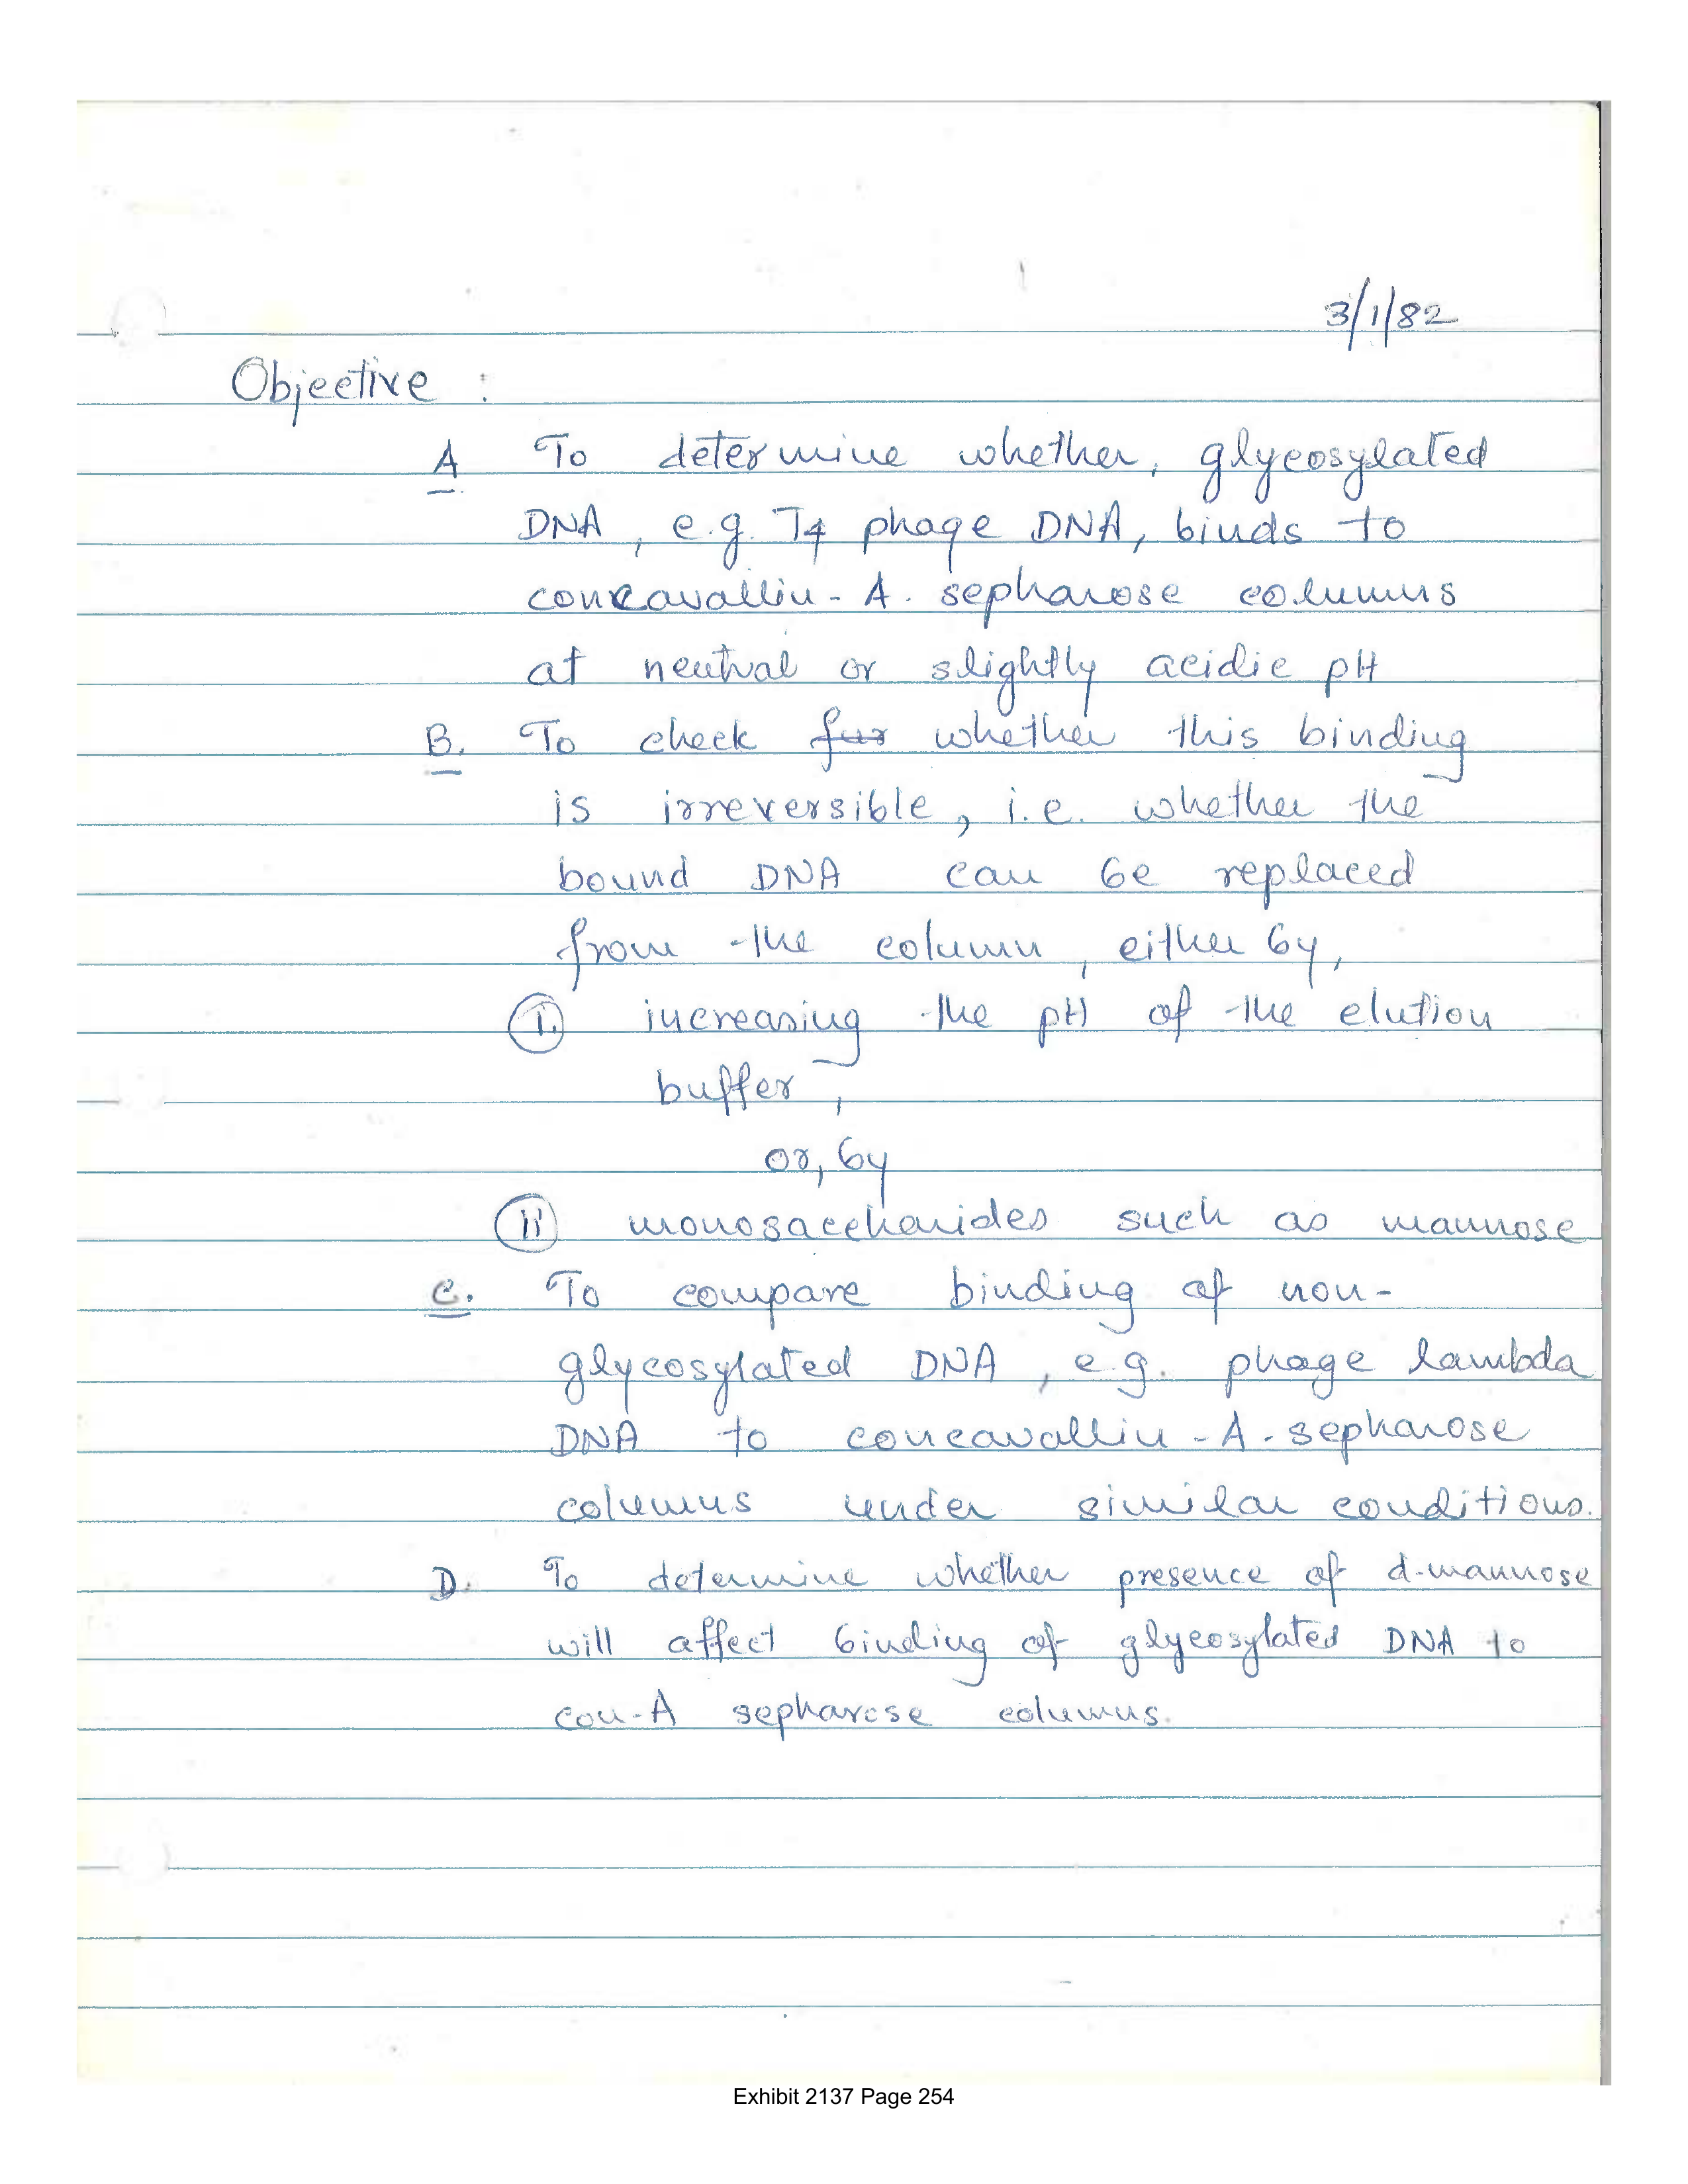 3/1/82
Objective :
A To determine whether, glycosylated
DNA, e.g. T4 phage DNA, binds to
concavallin-A. sepharose columns
at neutral or slightly acidic pH
B. To check for whether this binding
is irreversible, i.e. whether the
bound DNA can be replaced
from the column, either by,
I. increasing the pH of the elution
buffer,
or, by
ii monosaccharides such as mannose
C. To compare binding of non-
glycosylated DNA, e.g. phage lambda
DNA to concavallin-A-sepharose
columns under similar conditions.
D. To determine whether presence of d-mannose
will affect binding of glycosylated DNA to
con-A sepharose columns.
Exhibit 2137 Page 254